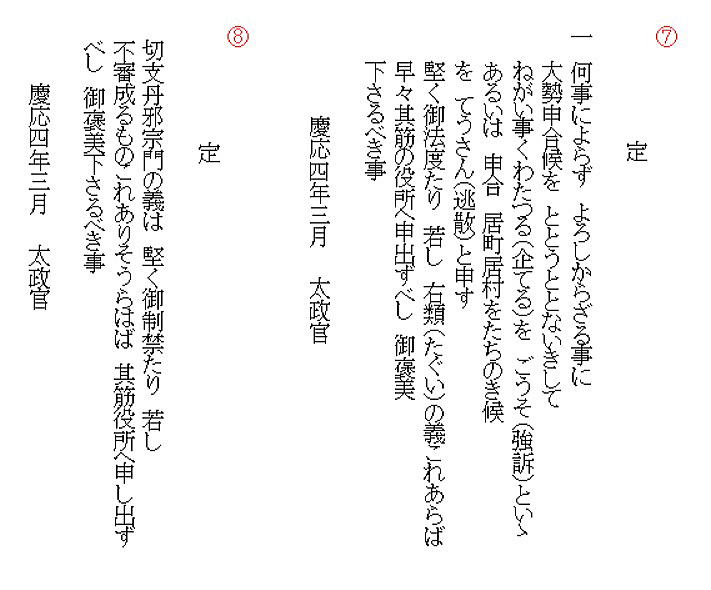 ⑦
定
一 何事によらず よろしからざる事に
大勢申合候を ととうととないきして
ねがい事くわたつる(企てる)を ごうそ(強訴)といゝ
あるいは 申合 居町居村をたちのき候
を てうさん(逃散)と申す
堅く御法度たり 若し 右類(たぐい)の義これあらば
早々其筋の役所へ申出ずべし 御褒美
下さるべき事
慶応四年三月 太政官
⑧
定
切支丹邪宗門の義は 堅く御制禁たり 若し
不審成るものこれありそうらはば 其筋役所へ申し出ず
べし 御褒美下さるべき事
慶応四年三月 太政官